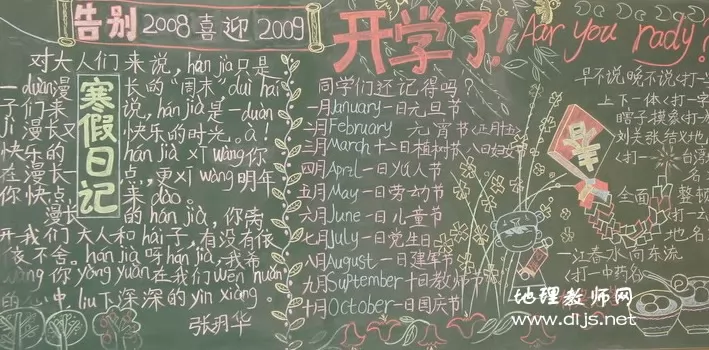 告别2008喜迎2009
寒假日记
对大人们来说，hán jià只是
一duàn漫长的"周末"duì hái
子们来说，hán jià是一duàn
jì漫长又快乐的时光。à！
快乐的hán jià xī wàng你
在漫长一点，更xī wàng明年
你快点来dào。
漫长的hán jià，你离
开我们大人和hái子，有没有依
依不舍。hán jià呀hán jià，我希
wàng你yǒng yuǎn在我们wēn nuǎn
的心中，liú下深深的yìn xiàng。
张玥华
开学了！Aar you rady？
同学们还记得吗？
一月January一日元旦节
二月February 元宵节(正月十五
三月March十二日植树节 八日妇女
四月April一日愚人节
五月May一日劳动节
六月June一日儿童节
七月July一日党生日
八月August一日建军节
九月September十日教师节
十月October一日国庆节
早不说晚不说(打一
上下一体(打一字
瞎子摸象(打一
刘关张结义(地
(打一台湾
名
全面整顿
(打一
地名
一江春水向东流
(打一中药名)
地理教师网
www.dljs.net